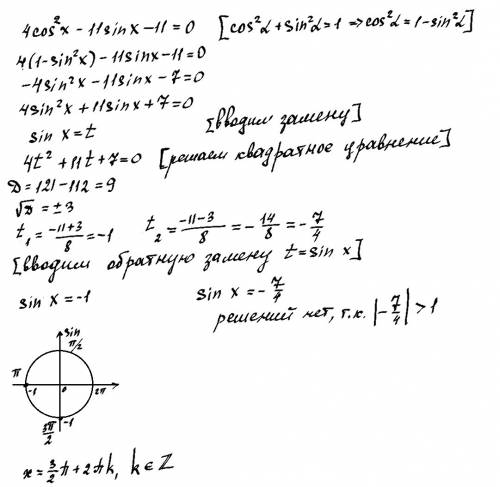 4cos²x - 11sinx - 11 = 0 [cos²α + sin²α = 1 => cos²α = 1 - sin²α]
4(1 - sin²x) - 11sinx - 11 = 0
-4sin²x - 11sinx - 7 = 0
4sin²x + 11sinx + 7 = 0
sin x = t [вводим замену]
4t² + 11t + 7 = 0 [решаем квадратное уравнение]
D = 121 - 112 = 9
√D = ±3
t₁ = (-11+3)/8 = -1 t₂ = (-11-3)/8 = -14/8 = -7/4
[вводим обратную замену t = sin x]
sin x = -1 sin x = -7/4
решений нет, т.к. |-7/4| > 1
sin
π/2
π
-1 0 2π
3π/2 -1
x = 3/2 π + 2πk, k ∈ Z